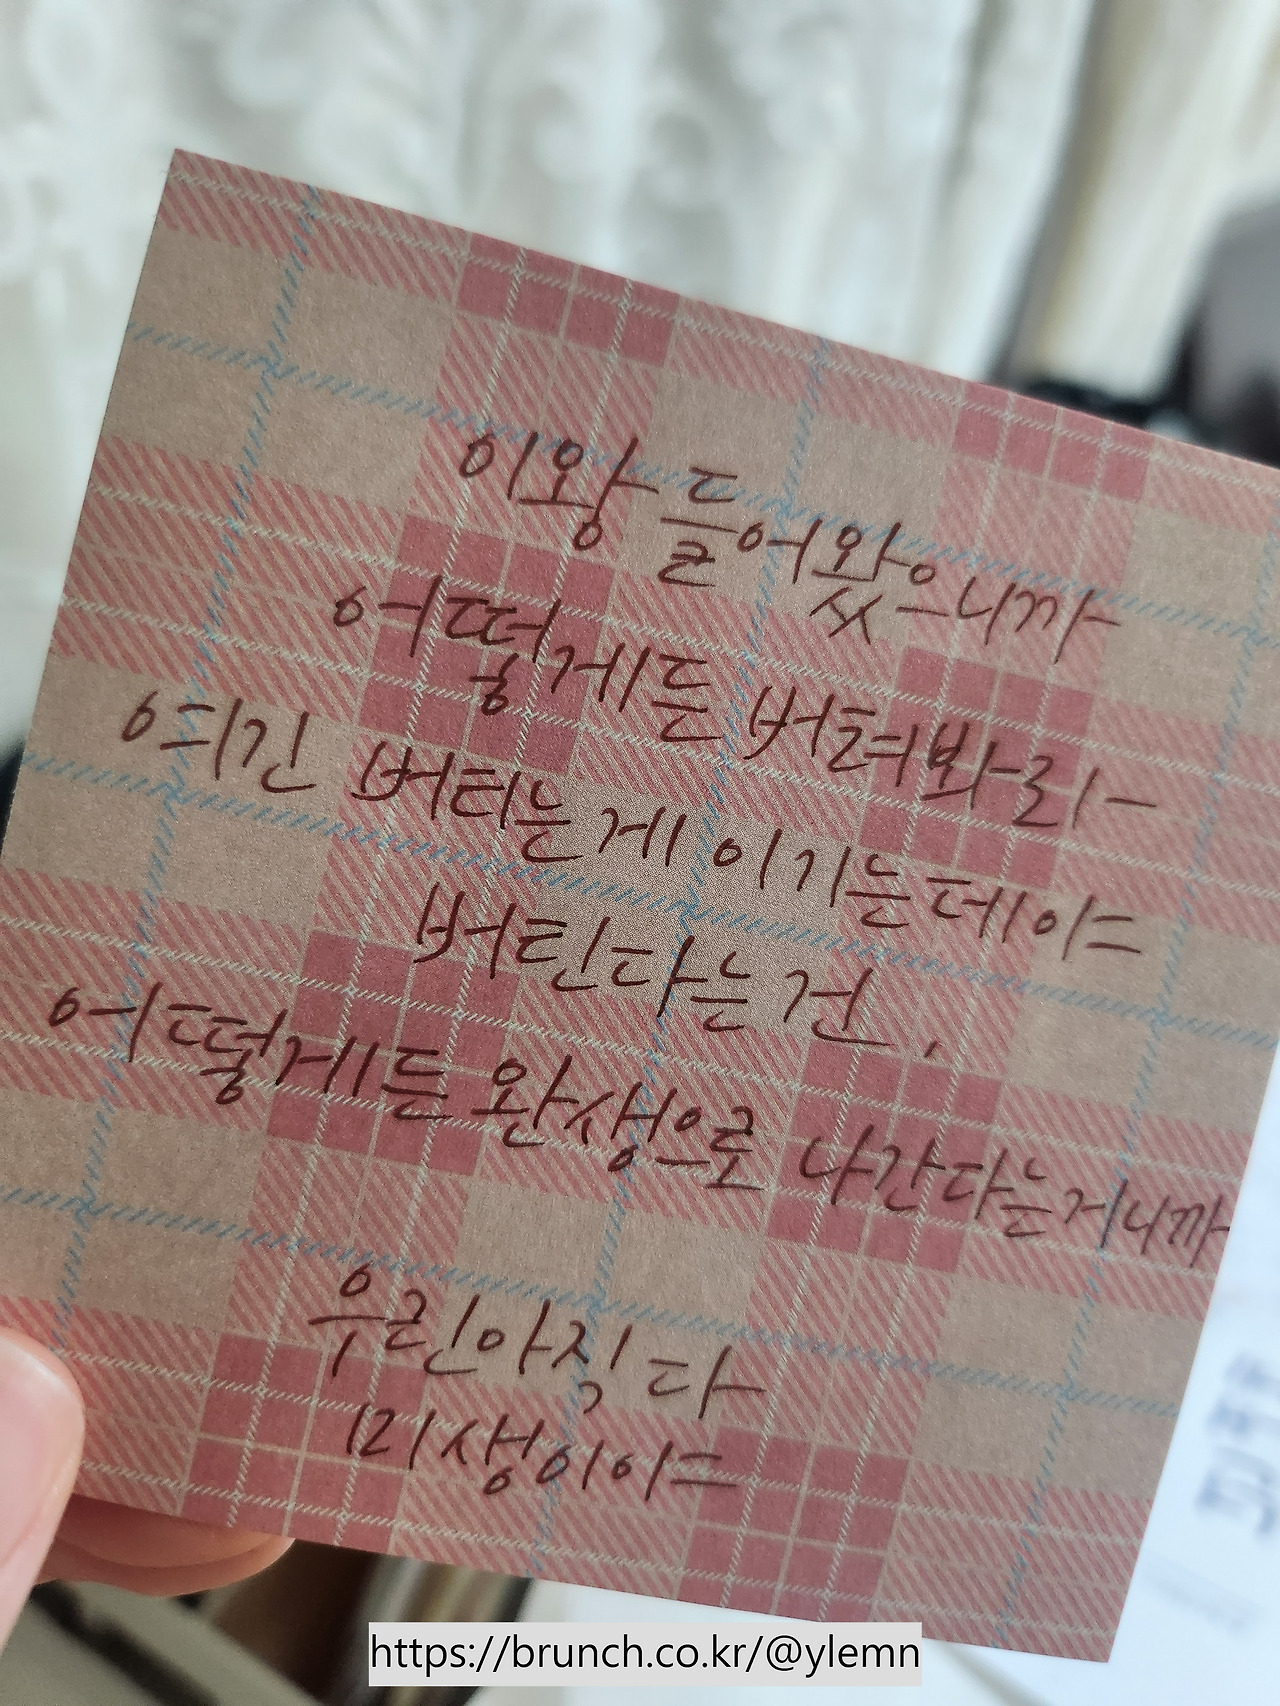 이왕 들어왔으니까
어떻게든 버텨봐라-
여긴 버티는게 이기는데야
버틴다는건,
어떻게든 완생으로 나간다는거니까
우린아직 다
미생이야
https://brunch.co.kr/@ylemn